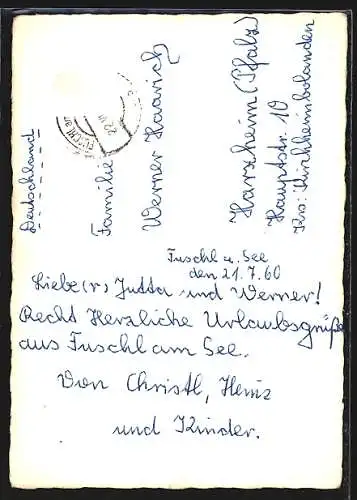 Deutschland
Familie
Werner Haarich
Harxheim (Pfalz)
Hauptstr. 10
Krs: Kirchheimbolanden
Fuschl a. See
den 21.7.60
Liebe(r) Jutta und Werner!
Recht Herzliche Urlaubsgrüße
aus Fuschl am See.
Von Christl, Heinz
und Kinder.